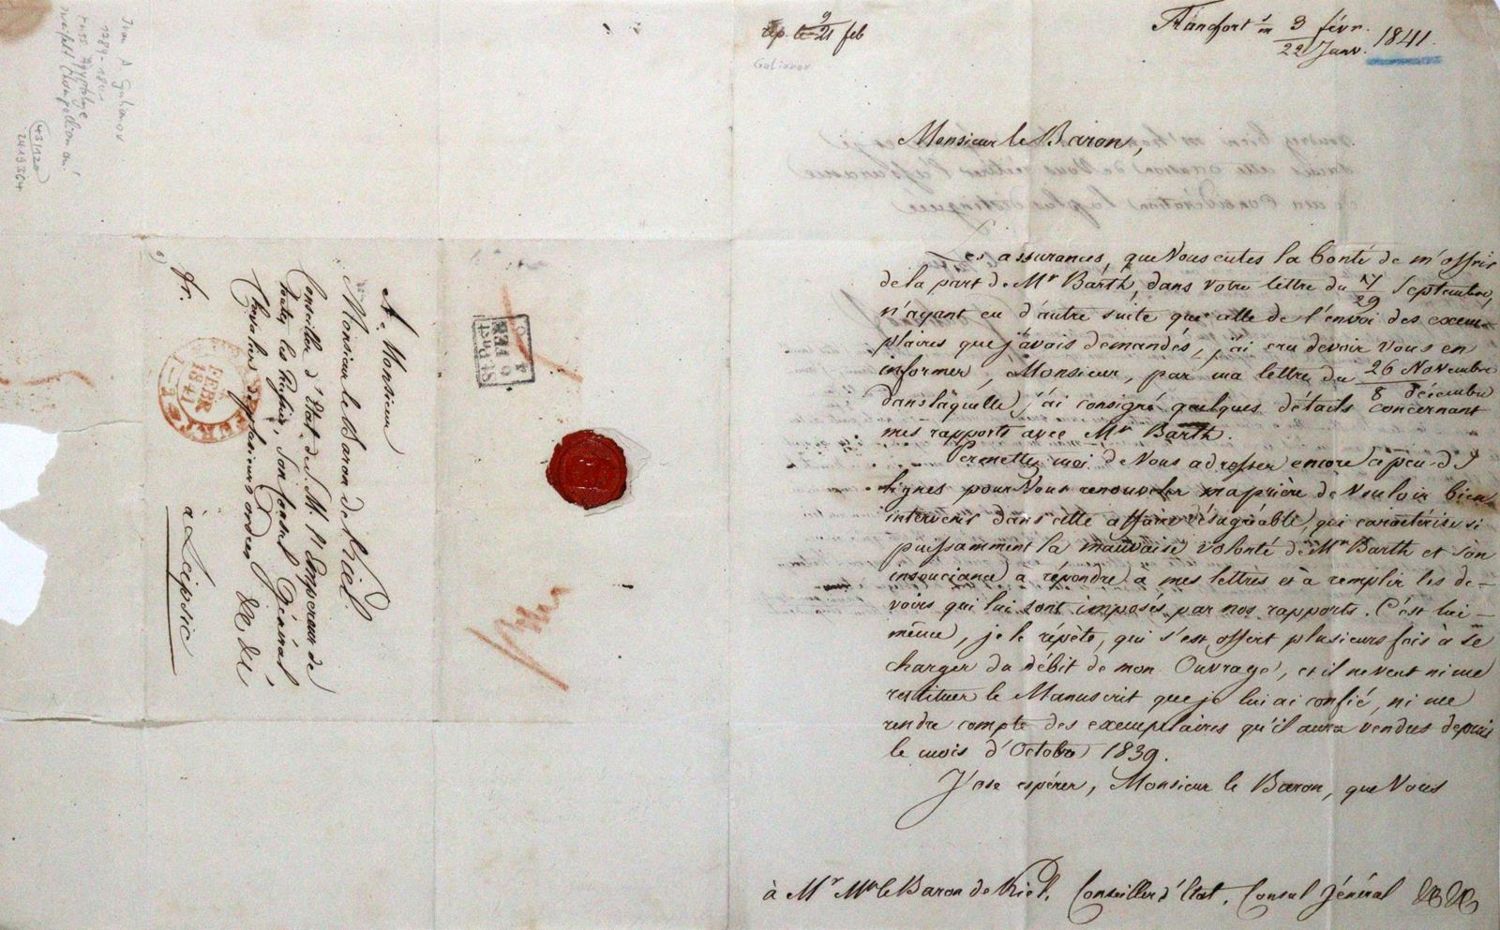 Ivan A Gulianov
1789-1841
russ. Ägyptologe
43/120
2419564
A Monsieur
Monsieur le Baron de Kiel.
Conseiller d'Etat de S. M. l'Empereur de
toutes les Russies, Son Consul Général
Chevalier de plusieurs ordres &c &c
à Leipsic
fr.
FEBR
1841
St.Post
6 FEB
rép. le 9/21 feb
Gulianov
Francfort s/m 3 févr. / 22 Janv. 1841.
Monsieur le Baron,
Les assurances, que Vous eutes la bonté de m'offrir
de la part de Mr Barth, dans votre lettre du 17/29 Septembre,
n'ayant eu d'autre suite que celle de l'envoi des exem-
plaires que j'avois demandés, j'ai cru devoir Vous en
informer, Monsieur, par ma lettre du 26 Novembre / 8 Décembre
dans laquelle j'ai consigné quelques détails concernant
mes rapports avec Mr Barth.
Permettez moi de Vous adresser encore ce peu de
lignes pour Vous renouveler ma prière de Vouloir bien
intervenir dans cette affaire désagréable, qui caractérise si
puissamment la mauvaise volonté de Mr Barth et son
insouciance à répondre à mes lettres et à remplir les de-
voirs qui lui sont imposés par nos rapports. C'est lui-
même, je le répète, qui s'est offert plusieurs fois à se
charger du débit de mon Ouvrage, et il ne veut ni me
restituer le Manuscrit que je lui ai confié, ni me
rendre compte des exemplaires qu'il aura vendus depuis
le mois d'Octobre 1839.
J'ose espérer, Monsieur le Baron, que Vous
à Mr Mr le Baron de Kiel, Conseiller d'Etat, Consul Général &c &c